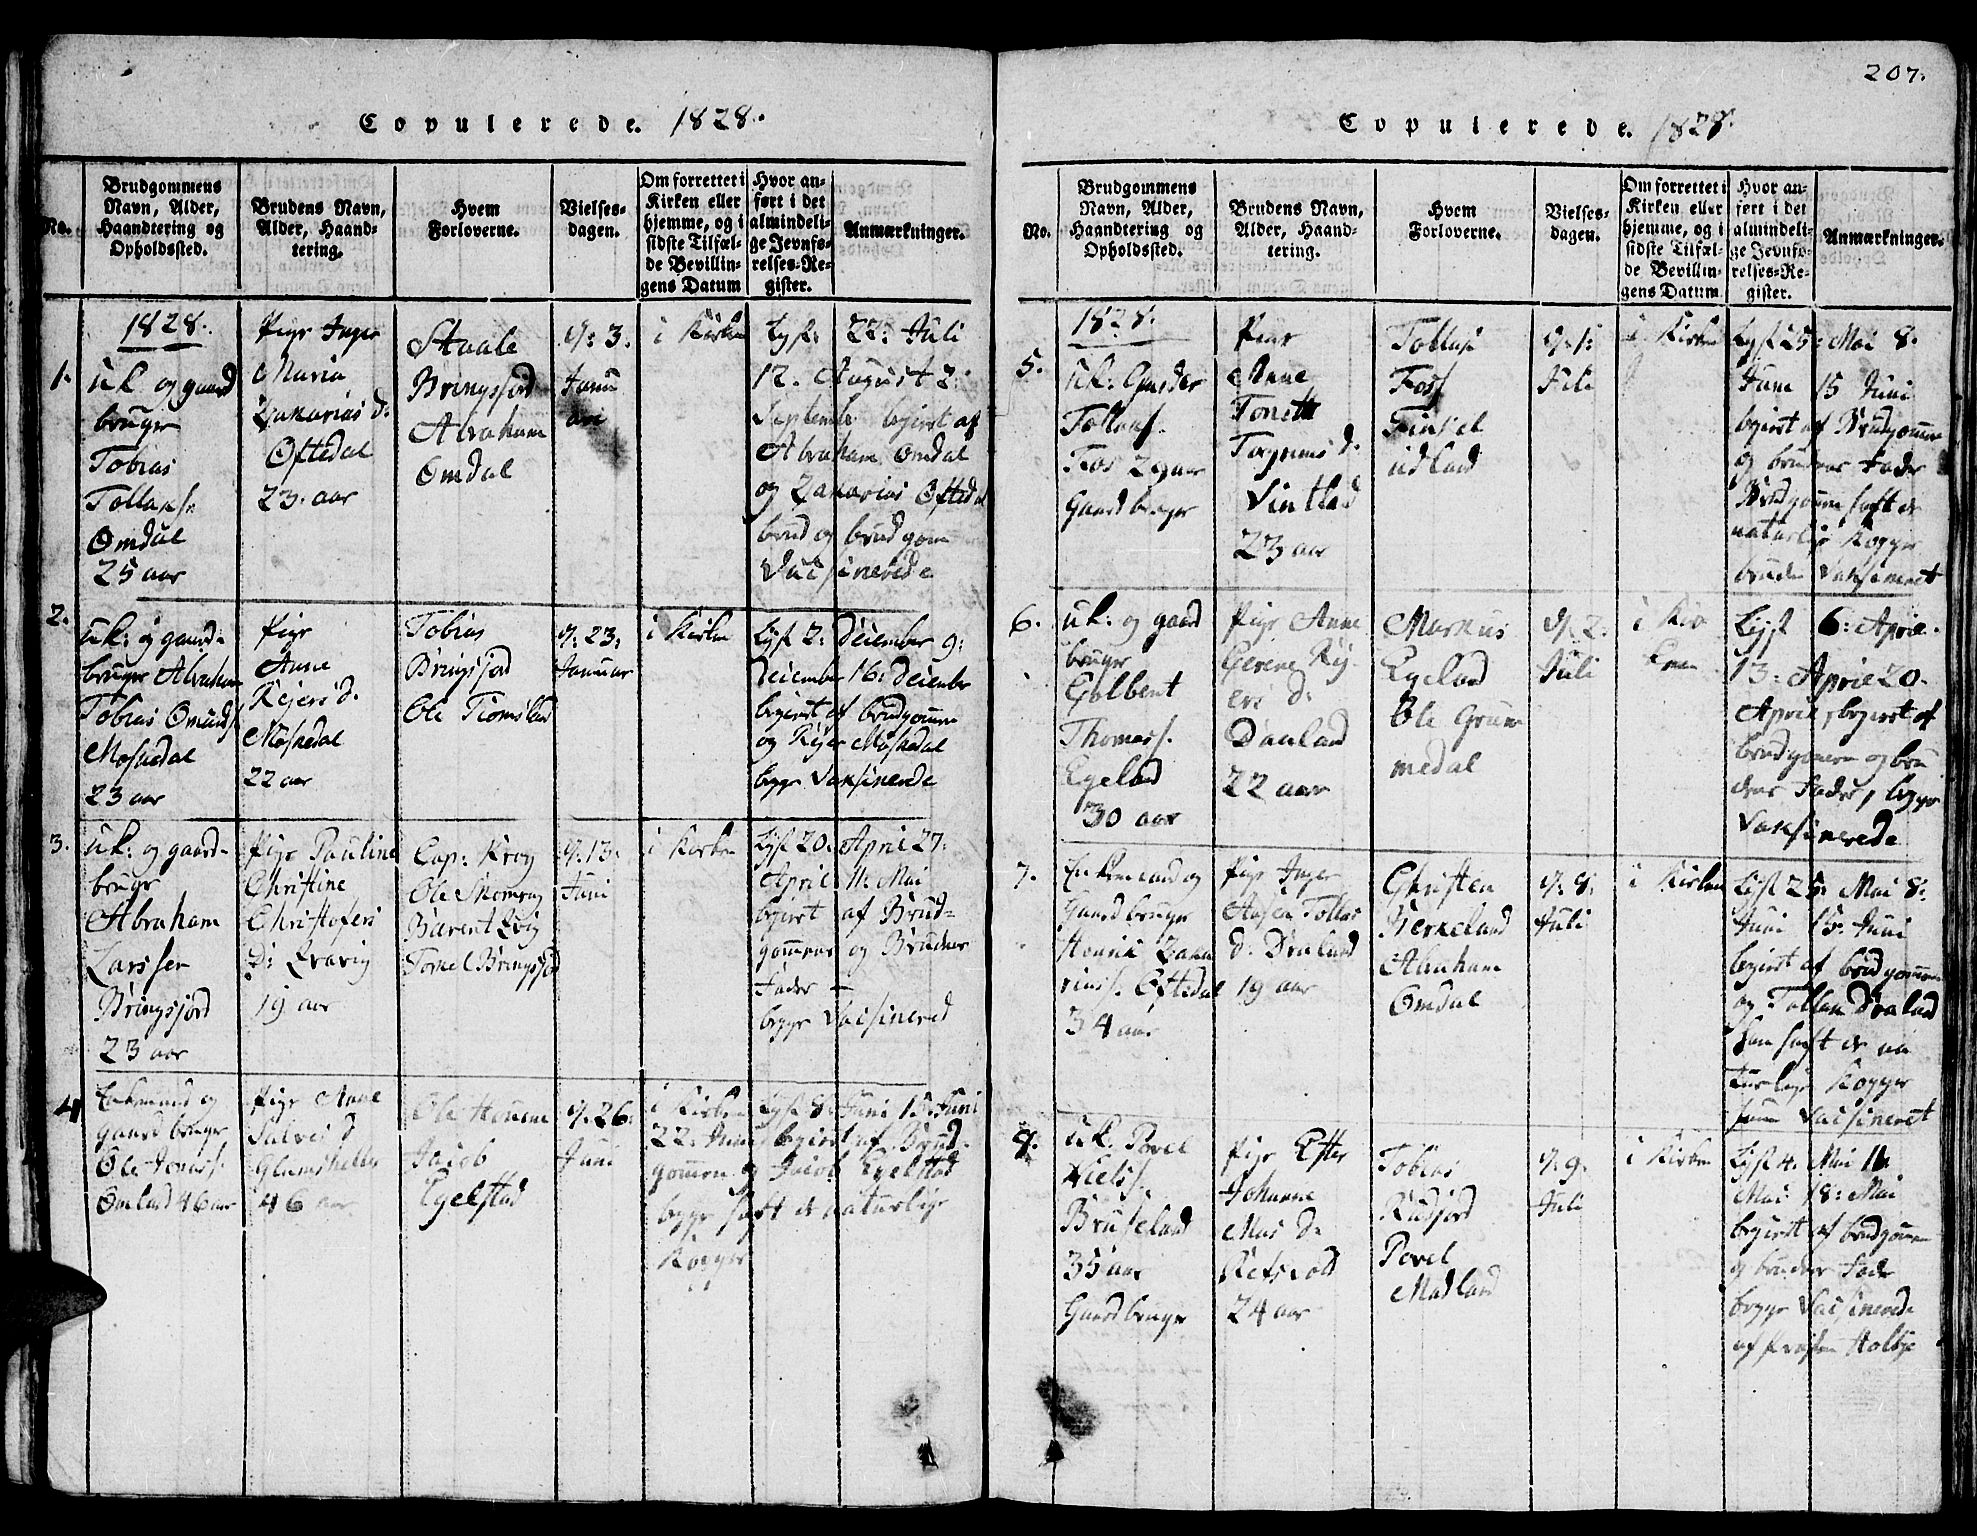 207.
Copulerede. 1828.
No.
Brudgommens Navn, Alder, Haandtering og Opholdssted.
Brudens Navn, Alder, Haandtering.
Hvem Forloverne.
Vielses-dagen.
Om forrettet i Kirken eller hjemme, og i sidste Tilfælde Bevillingens Datum
Hvor anført i det almindelige Jevnførelses-Register.
Anmærkninger.
1828.
1.
Uk og gaard
bruger
Tobias
Tollaks.
Omdal
25 aar
Pige Inger
Maria
Zakarias d.
Oftedal
23. aar
Staale
Bringsjord
Abraham
Omdal
d: 3.
Janu
ari
i Kirken
Lyst: 22: Juli
12. August 2:
September begiert af
Abraham Omdal
og Zakarias Oftedal
brud og brudgom
Vaksinerede
2.
Uk: og gaard-
bruger Abraham
Tobias Omunds
Moskedal
23 aar
Pige
Anne
Reiers d.
Moskedal
22 aar
Tobias
Bringsjord
Ole Tiomsland
d: 23:
Januar
i Kirken
Lyst 2: Deiember 9:
Deiember 16: Deiember
begiert af brudgommen
og Reier Moskedal
begge Vaksinerede
3.
Uk: og gaard-
bruger
Abraham
Larssen
Bringsjord
23 aar
Pige Pauline
Christine
Christofers
D: Qvavig
19 aar
Cap: Krog
Ole Skomrag
Barent Qvig
Tomel Bringsjord
d: 13:
Juni
i Kirken
Lyst 20. April 27:
April 11: Mai
begiert af Brud-
gommens og Brudens
Fader —
begge Vaisinered
4
Enkemand og
gaard bruger
Ole Jonas s.
Omland 46 aar
Pige Anne
Salvei d
46 aar
Ole Houme
Jacob
Egelstad
d: 26:
Juni
i Kirken Lyst 8: Juni 15: Juni
22: Juni begiert af Brud-
gommen og Jacob Egelstad
begge haft de naturlige
Kopper
Copulerede. 1828.
No.
Brudgommens Navn, Alder, Haandtering og Opholdssted.
Brudens Navn, Alder, Haandtering.
Hvem Forloverne.
Vielses-dagen.
Om forrettet i Kirken eller hjemme, og i sidste Tilfælde Bevillingens Datum
Hvor anført i det almindelige Jevnførelses-Register.
Anmærkninger.
1828.
5.
Uk: Gunder
Tollaks.
Fos 29 aar
Gaardbruger
Pige
Anne
Tonette
Torgrims d.
Vintland
23 aar
Tollak
Foss
udland
d: 1:
Juli
i Kirken
Lyst 25: Mai 8.
Juni 15 Juni
begiert af Brudgommen
og brudens Fader
Brudgommen haft de
naturlige Kopper
bruden Vaksineret
6.
Uk: og gaard
bruger
Golbent
Thomas s.
Egeland
30 aar
Pige Anne
Serene Rey
ers d:
Dauland
22 aar
Markus
Egeland
Ole Grum
medal
d: 2:
Juli
i Kir
ken
Lyst 6: April.
13: April 20.
April, begiert af
brudgommen og bru
dens Fader, begge
Vaksinerede
7.
Enkemand og
Gaard bruger
Henrik Zaka
rias s. Oftedal
34 aar
Pige Inger
Aasen Tollas
d. Draland
19 aar
Christen
Birkeland
Abraham
Omdal
d: 8:
Juli
i Kirken
Lyst 25: Mai 8:
Juni 15: Juni
begiert af brudgommen
og Tollan Draland
han haft de na
turlige Kopper
hun Vaisineret
8.
Uk. Povel
Niels s.
Bruseland
35 aar
Gaardbruger
Pige Ester
Johanne
Mas d:
24 aar
Tobias
Rudjord
Povel
Madland
d: 9.
Juli
i Kirken
Lyst 4. Mai 11.
Mai 18: Mai
begiert af brudgommen
og brudens Fader
begge Vaisinerede
af Præsten Holbye